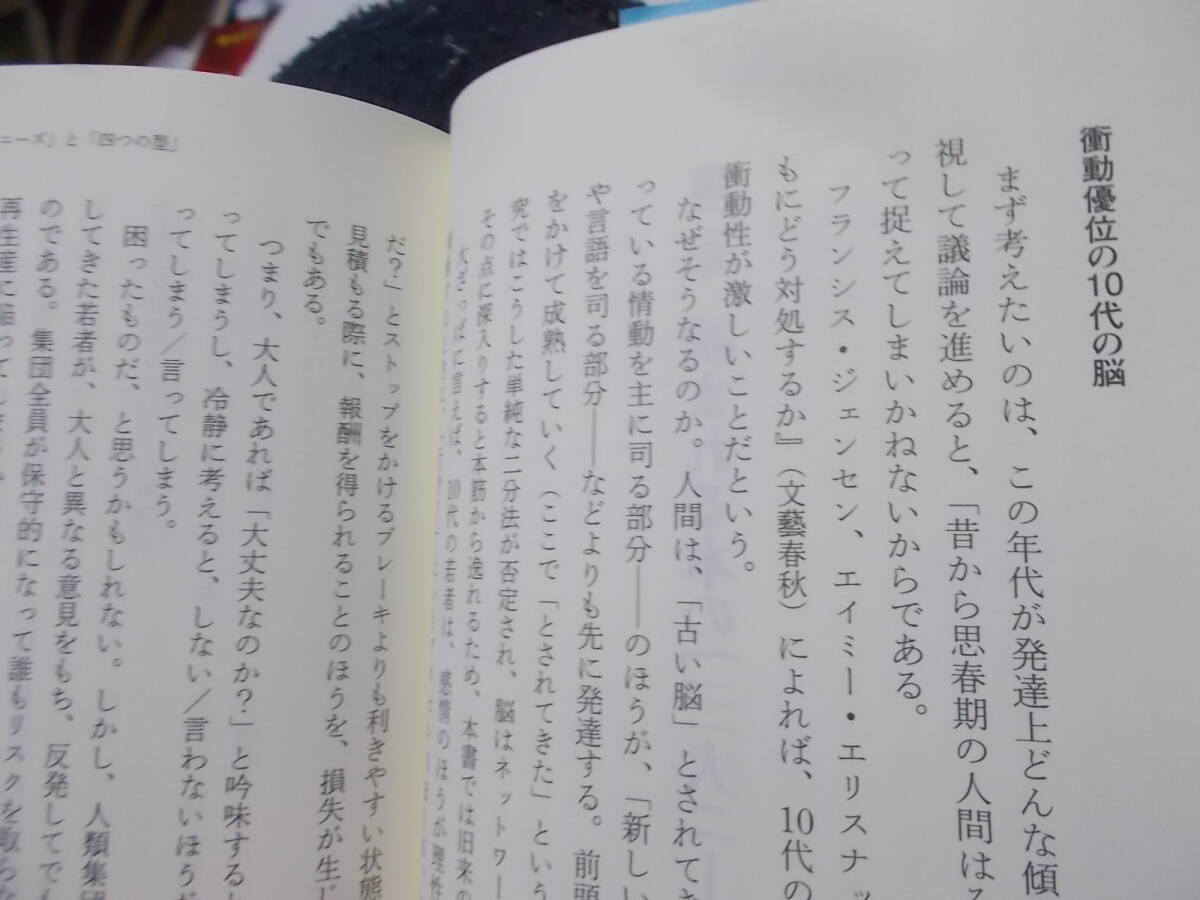 衝動優位の10代の脳
まず考えたいのは、この年代が発達上どんな傾
視して議論を進めると、「昔から思春期の人間は
って捉えてしまいかねないからである。
フランシス・ジェンセン、エイミー・エリスナッ
もにどう対処するか』（文藝春秋）によれば、10代の
衝動性が激しいことだという。
なぜそうなるのか。人間は、「古い脳」とされてき
っている情動を主に司る部分――のほうが、「新しい
や言語を司る部分――などよりも先に発達する。前頭
をかけて成熟していく（ここで「とされてきた」という
究ではこうした単純な二分法が否定され、脳はネットワー
その点に深入りすると本筋から逸れるため、本書では旧来の
大ざっぱに言えば、10代の若者は、感情のほうが理性
ニーズ」と「四つの型」
だ？」とストップをかけるブレーキよりも利きやすい状態
見積もる際に、報酬を得られることのほうを、損失が生じ
でもある。
つまり、大人であれば「大丈夫なのか？」と吟味する
ってしまうし、冷静に考えると、しない／言わないほうだ
ってしまう／言ってしまう。
困ったものだ、と思うかもしれない。しかし、人類集団
してきた若者が、大人と異なる意見をもち、反発してでも
のである。集団全員が保守的になって誰もリスクを取らな
再生産に陥ってしまう